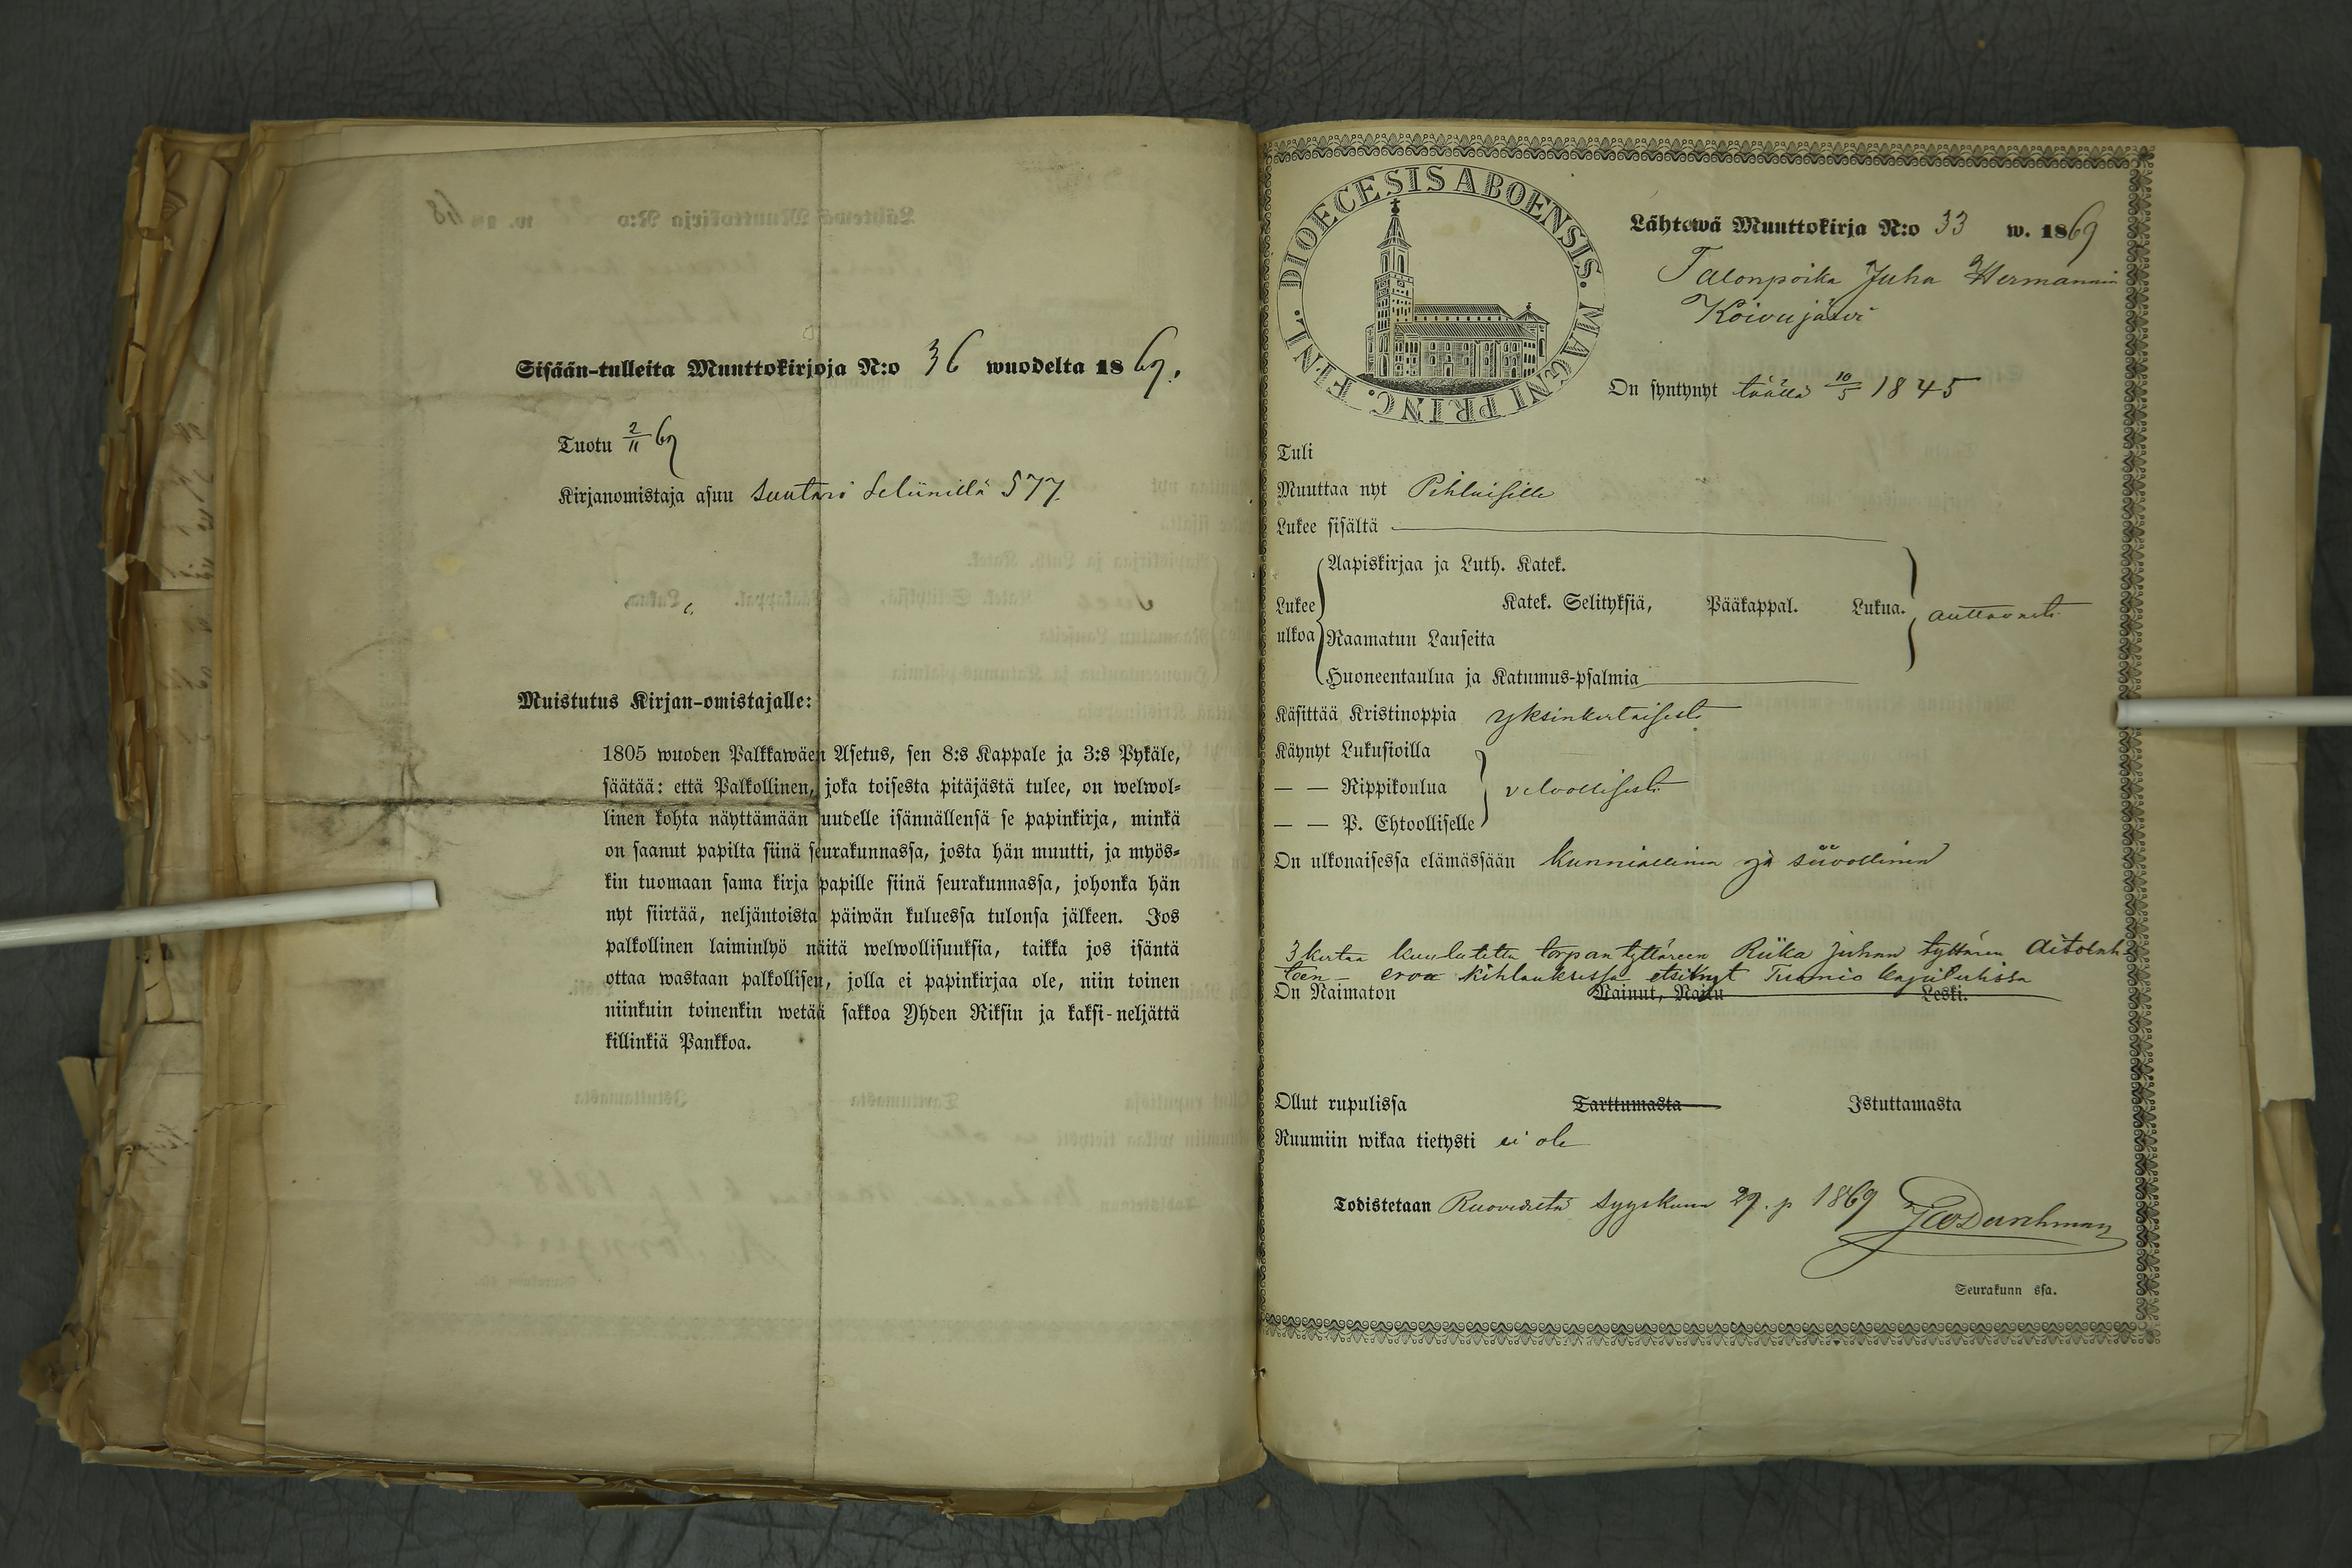 Sisään-tulleita Muuttokirjoja N:o 36 wuodelta 1869.
Tuotu 2/11 69
Kirjanomistaja asuu suutari Seliinillä 577.
Muistutus Kirjan-omistajalle:
1805 wuoden Palkkawäen Asetus, sen 8:s Kappale ja 3:s Pykäle,
säätää: että Palkollinen, joka toisesta pitäjästä tulee, on welwol-
linen kohta näyttämään uudelle isännällensä se papinkirja, minkä
on saanut papilta siinä seurakunnassa, josta hän muutti, ja myös-
kin tuomaan sama kirja papille siinä seurakunnassa, johonka hän
nyt siirtää, neljäntoista päiwän kuluessa tulonsa jälkeen. Jos
palkollinen laiminlyö näitä welwollisuuksia, taikka jos isäntä
ottaa wastaan palkollisen, jolla ei papinkirjaa ole, niin toinen
niinkuin toinenkin wetää sakkoa Yhden Riksin ja kaksi-neljättä
killinkiä Pankkoa.
DIOECESIS ABOENSIS. MAGNI PRINC. FINL.
Lähtewä Muuttokirja N:o 33 w. 1869
Talonpoika Juha Hermannin
Koivujärvi
On syntynyt täällä 10/5 1845
Tuli
Muuttaa nyt Pihlaisille
Lukee sisältä
Lukee ulkoa
Aapiskirjaa ja Luth. Katek.
Katek. Selityksiä, Pääkappal. Lukua. auttavasti
Raamatun Lauseita
Huoneentaulua ja Katumus-psalmia
Käsittää Kristinoppia yksinkertaisesti
Käynyt Lukusioilla
— — Rippikoulua velvollisesti
— — P. Ehtoolliselle
On ulkonaisessa elämässään kunniallinen ja siivollinen
3 kertaa kuulutettu torpantyttäreen Riika Juhan tyttären Aitolah-
teen – eroa kihlauksissa etsinyt Tuomio kapitulissa
On Naimaton Nainut, Naitu Leski.
Ollut rupulissa Tarttumasta Istuttamasta
Ruumiin wikaa tietysti ei ole
Todistetaan Ruovedeltä Syyskuun 29. p 1869
Seurakunn ssa.